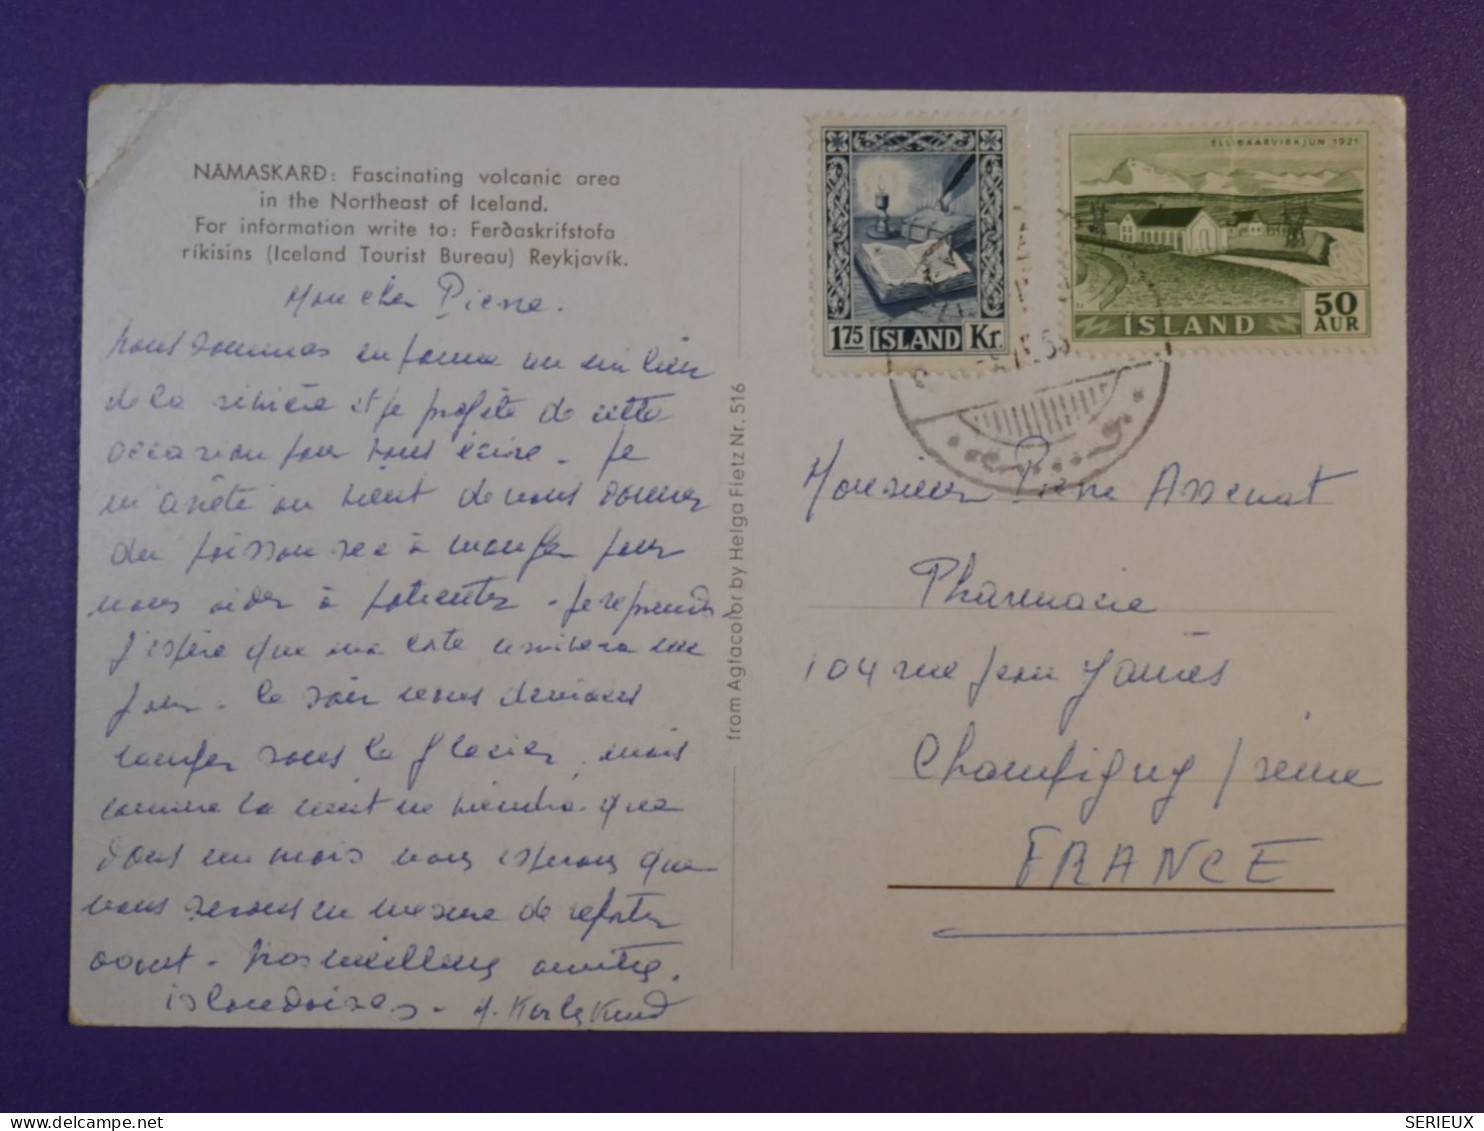 NÁMASKARÐ: Fascinating volcanic area
in the Northeast of Iceland.
For information write to: Ferðaskrifstofa
ríkisins (Iceland Tourist Bureau) Reykjavík.
Mon cher Pierre.
nous sommes en panne au milieu
de la rivière et je profite de cette
occasion pour vous écrire. Je
m'arrête on vient de nous donner
du poisson sec à manger pour
nous aider à patienter. je reprends
J'espère que ma carte arrivera un
jour. Le soir nous devions
camper sous le glacier, mais
comme la nuit ne viendra que
dans un mois nous espérons que
nous serons en mesure de repartir
avant. nos meilleures amitiés
islandaises.
from Agfacolor by Helga Fietz Nr. 516
1.75 ÍSLAND Kr.
ELLIÐAÁRVIRKJUN 1921
50 AUR
ÍSLAND
Monsieur Pierre Assenat
Pharmacie
104 rue Jean Jaurès
Champigny / seine
FRANCE
delcampe.net
SERIEUX